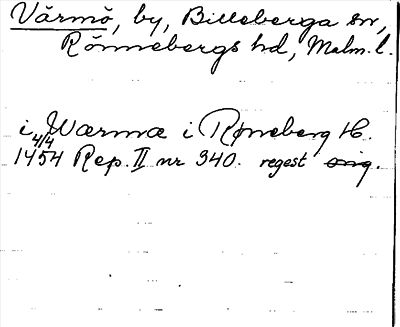 Värmö, by, Billeberga sn,
Rönnebergs hd, Malm. l.
i Wærmæ i Røneberg H.
4/4
1454 Rep. II nr 340. regest orig.